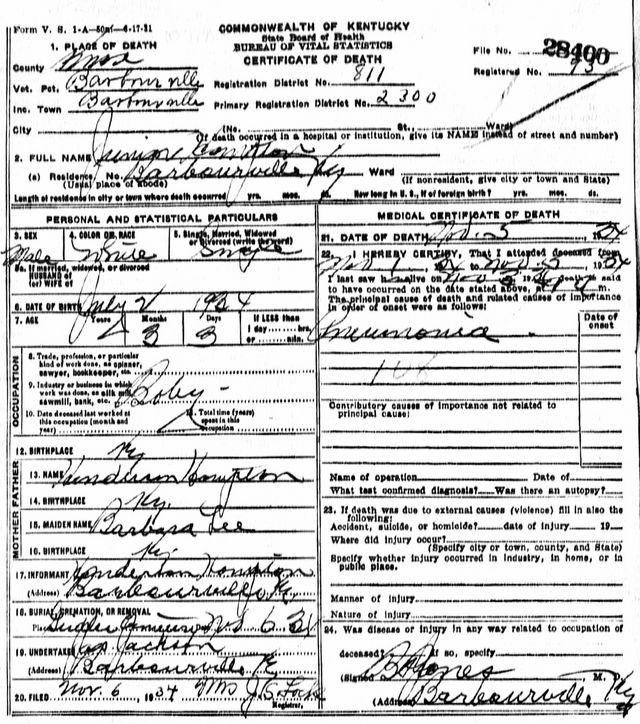 Form V. S. 1-A—50m—6-17-31
COMMONWEALTH OF KENTUCKY
State Board of Health
BUREAU OF VITAL STATISTICS
CERTIFICATE OF DEATH
File No. 28400
Registered No. 93
1. PLACE OF DEATH
County Knox
Vot. Pct. Barbourville
Registration District No. 811
Inc. Town Barbourville
Primary Registration District No. 2300
City (No. St., Ward)
(If death occurred in a hospital or institution, give its NAME instead of street and number)
2. FULL NAME Junior
(a) Residence No. Barbourville Ky Ward
(Usual place of abode) (If nonresident, give city or town and State)
Length of residence in city or town where death occurred yrs. mos. ds. How long in U. S., if of foreign birth? yrs. mos. ds.
PERSONAL AND STATISTICAL PARTICULARS
3. SEX 4. COLOR OR RACE 5. Single, Married, Widowed
or Divorced (write the word)
Male White Single
5a. If married, widowed, or divorced
HUSBAND of
(or) WIFE of
6. DATE OF BIRTH July 2 1934
7. AGE Years Months Days If LESS than
1 day hrs.
or min.
3 3
OCCUPATION
8. Trade, profession, or particular
kind of work done, as spinner,
sawyer, bookkeeper, etc.
9. Industry or business in which
work was done, as silk mill,
sawmill, bank, etc. Baby
10. Date deceased last worked at
this occupation (month and
year)
11. Total time (years)
spent in this
occupation
12. BIRTHPLACE Ky
MOTHER FATHER
13. NAME
14. BIRTHPLACE Ky.
15. MAIDEN NAME Barbara Lee
16. BIRTHPLACE Ky.
17. INFORMANT
(Address) Barbourville Ky
18. BURIAL, CREMATION, OR REMOVAL
Place Nov 6 34
19. UNDERTAKER Jackson
(Address) Barbourville Ky
20. FILED Nov. 6 1934 Mrs J. C.
Registrar.
MEDICAL CERTIFICATE OF DEATH
21. DATE OF DEATH Nov. 5 1934
22. I HEREBY CERTIFY, That I attended deceased from
Nov 1 34 to Nov 5 1934
I last saw h alive on death is said
to have occurred on the date stated above, at m.
The principal cause of death and related causes of importance
in order of onset were as follows:
Date of
onset
Pneumonia
Contributory causes of importance not related to
principal cause:
Name of operation Date of
What test confirmed diagnosis? Was there an autopsy?
23. If death was due to external causes (violence) fill in also the
following:
Accident, suicide, or homicide? date of injury 19
Where did injury occur?
(Specify city or town, county, and State)
Specify whether injury occurred in industry, in home, or in
public place.
Manner of injury
Nature of injury
24. Was disease or injury in any way related to occupation of
deceased? If so, specify
(Signed) Jones M. D.
(Address) Barbourville Ky